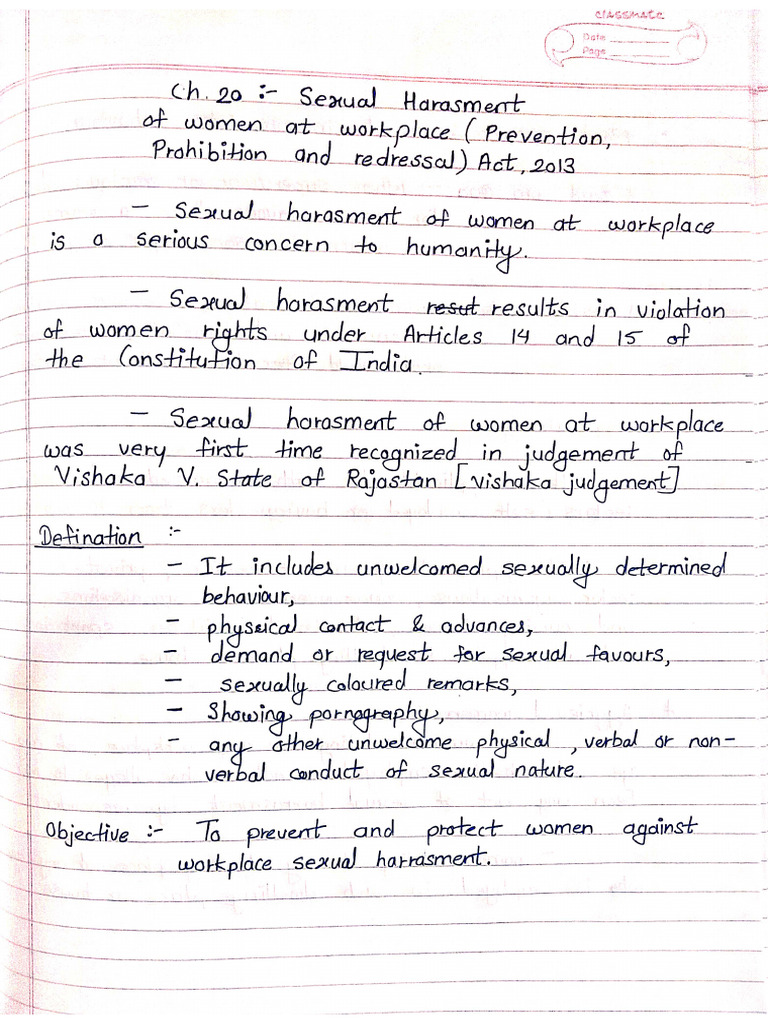 classmate
Date
Page
Ch. 20 :- Sexual Harasment
of women at workplace ( Prevention,
Prohibition and redressal) Act, 2013
- Sexual harasment of women at workplace
is a serious concern to humanity.
- Sexual harasment resut results in violation
of women rights under Articles 14 and 15 of
the Constitution of India.
- Sexual harasment of women at workplace
was very first time recognized in judgement of
Vishaka V. State of Rajastan [vishaka judgement]
Defination :-
- It includes unwelcomed sexually determined
behaviour,
- physical contact & advances,
- demand or request for sexual favours,
- sexually coloured remarks,
- Showing pornography,
- any other unwelcome physical , verbal or non-
verbal conduct of sexual nature.
Objective :- To prevent and protect women against
workplace sexual harrasment.